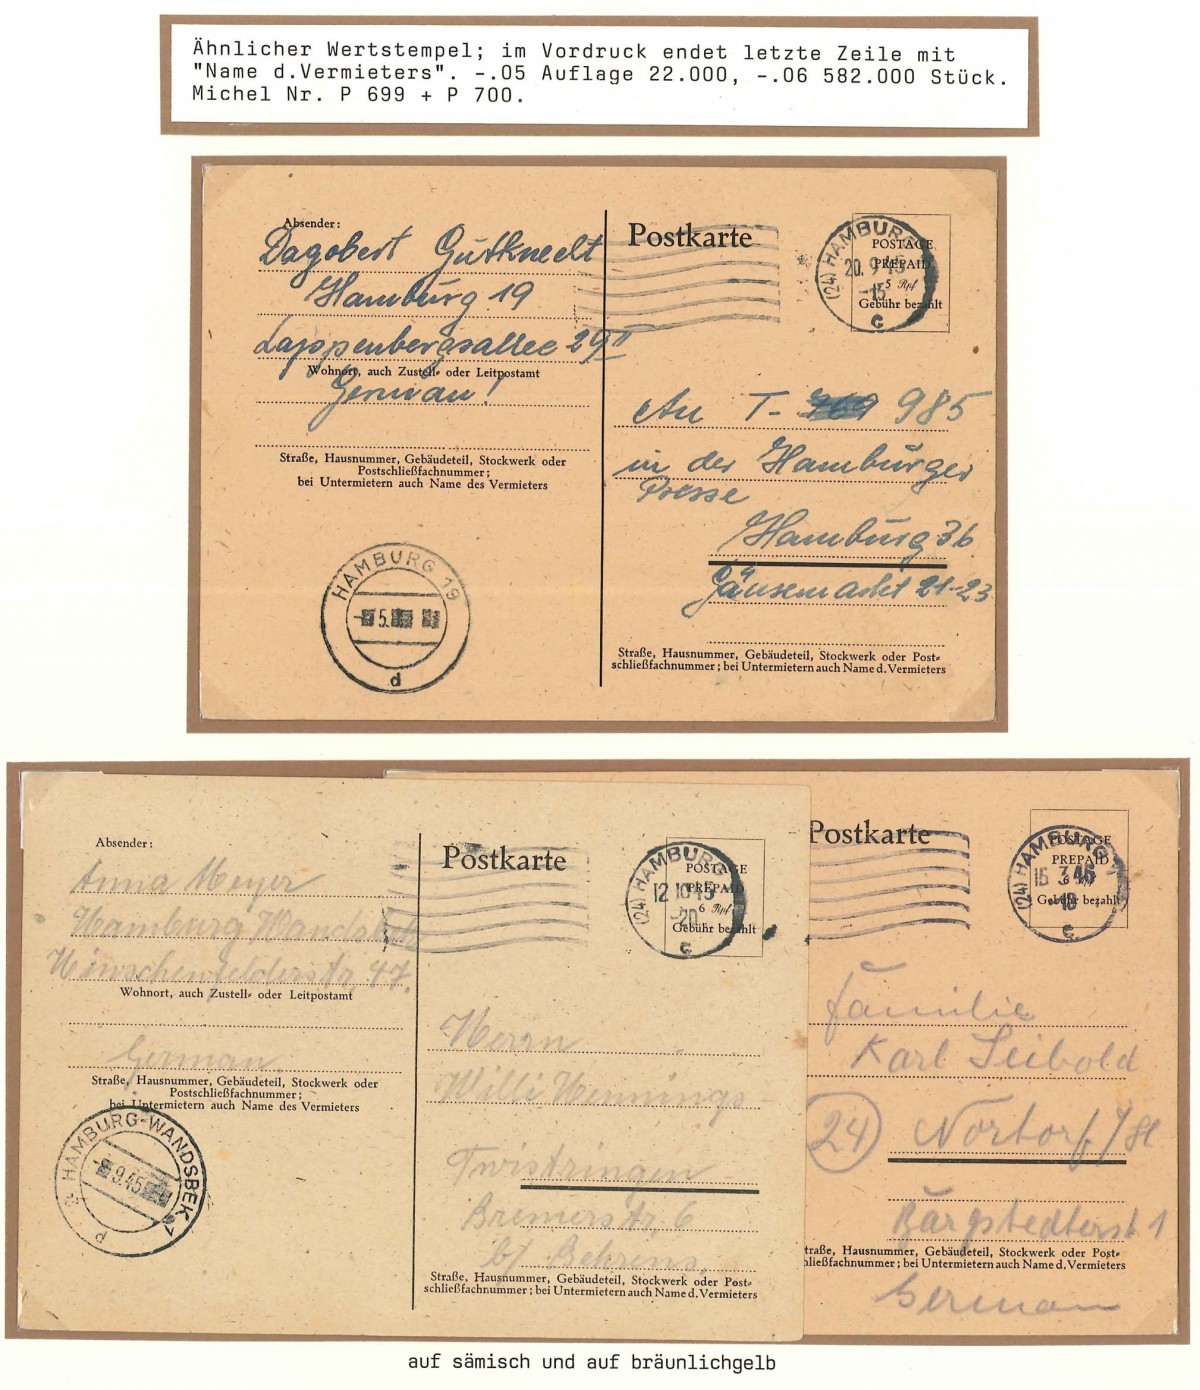 Ähnlicher Wertstempel; im Vordruck endet letzte Zeile mit
"Name d.Vermieters". -.05 Auflage 22.000, -.06 582.000 Stück.
Michel Nr. P 699 + P 700.
Absender:
Dagobert Gutknecht
Hamburg 19
Lappenbergsallee 29 II
Wohnort, auch Zustell- oder Leitpostamt
German!
Straße, Hausnummer, Gebäudeteil, Stockwerk oder
Postschließfachnummer;
bei Untermietern auch Name des Vermieters
HAMBURG 19
5.
d
Postkarte
(24) HAMBURG
20.9.45
-15
c
POSTAGE
PREPAID
5 Rpf
Gebühr bezahlt
An T- 985
in der Hamburger
Presse
Hamburg 36
Gänsemarkt 21-23
Straße, Hausnummer, Gebäudeteil, Stockwerk oder Post-
schließfachnummer; bei Untermietern auch Name d. Vermieters
Absender:
Anna Meyer
Hamburg Wandsbek
47.
Wohnort, auch Zustell- oder Leitpostamt
German.
Straße, Hausnummer, Gebäudeteil, Stockwerk oder
Postschließfachnummer;
bei Untermietern auch Name des Vermieters
HAMBURG-WANDSBEK
9.45
d
Postkarte
(24) HAMBURG
12.10.45
-20
c
POSTAGE
PREPAID
6 Rpf
Gebühr bezahlt
Herrn
Willi Hennings-
Twistringen
Bremerstr. 6
b/ Behrens.
Straße, Hausnummer, Gebäudeteil, Stockwerk oder Post-
schließfachnummer; bei Untermietern auch Name d. Vermieters
Postkarte
(24) HAMBURG 1
-18
c
POSTAGE
PREPAID
6
Gebühr bezahlt
Familie
Karl Seibold
24 Nortorf/Hl
Bargstedterst. 1
traße, Hausnummer, Gebäudeteil, Stockwerk oder Post-
hließfachnummer; bei Untermietern auch Name d. Vermieters
German
auf sämisch und auf bräunlichgelb